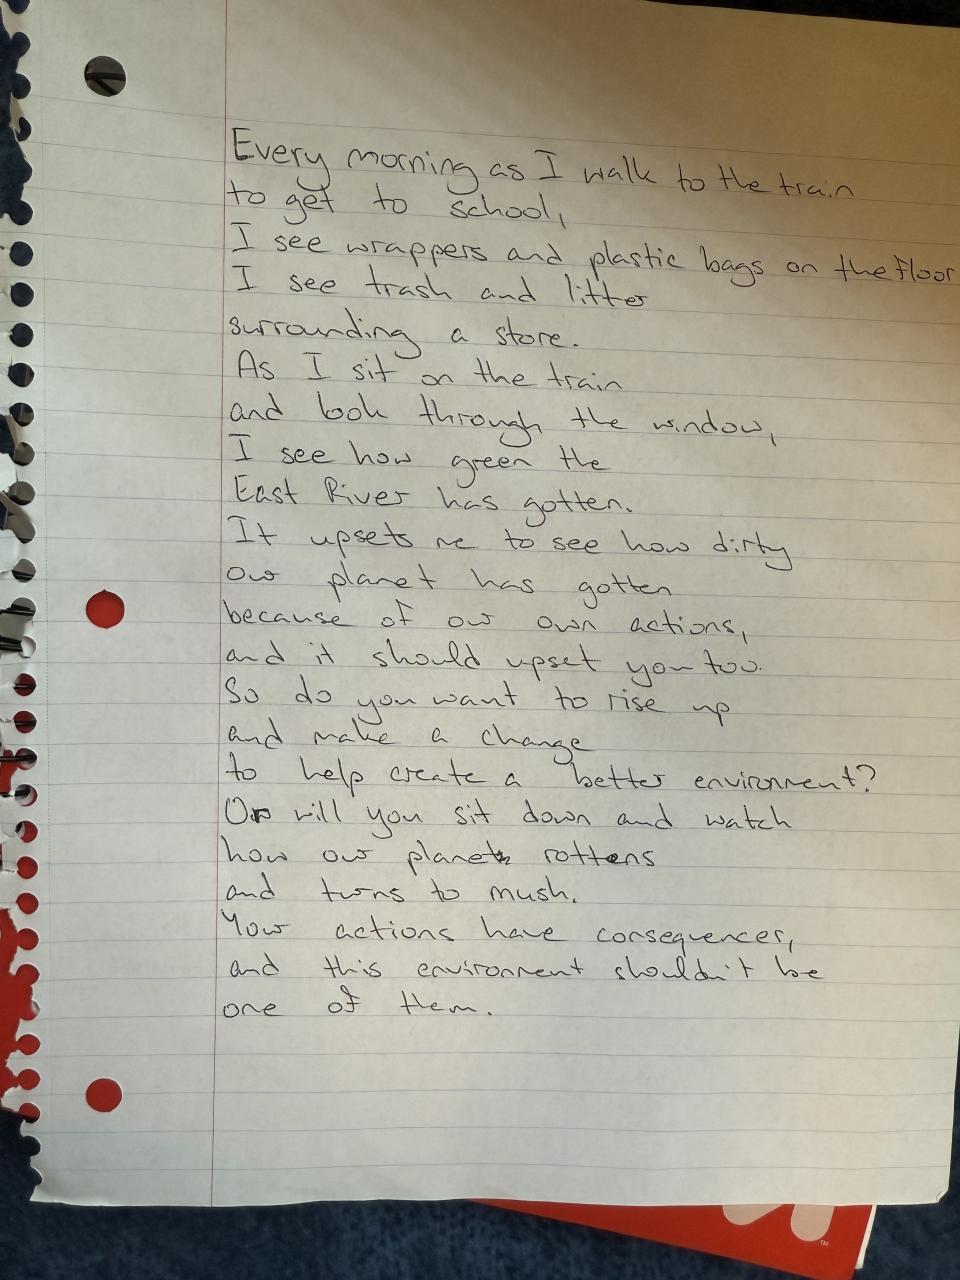 Every morning as I walk to the train
to get to school,
I see wrappers and plastic bags on the floor
I see trash and litter
surrounding a store.
As I sit on the train
and look through the window,
I see how green the
East River has gotten.
It upsets me to see how dirty
our planet has gotten
because of our own actions,
and it should upset you too.
So do you want to rise up
and make a change
to help create a better environment?
Or will you sit down and watch
how our planet rottens
and turns to mush.
Your actions have consequences,
and this environment shouldn't be
one of them.
TM